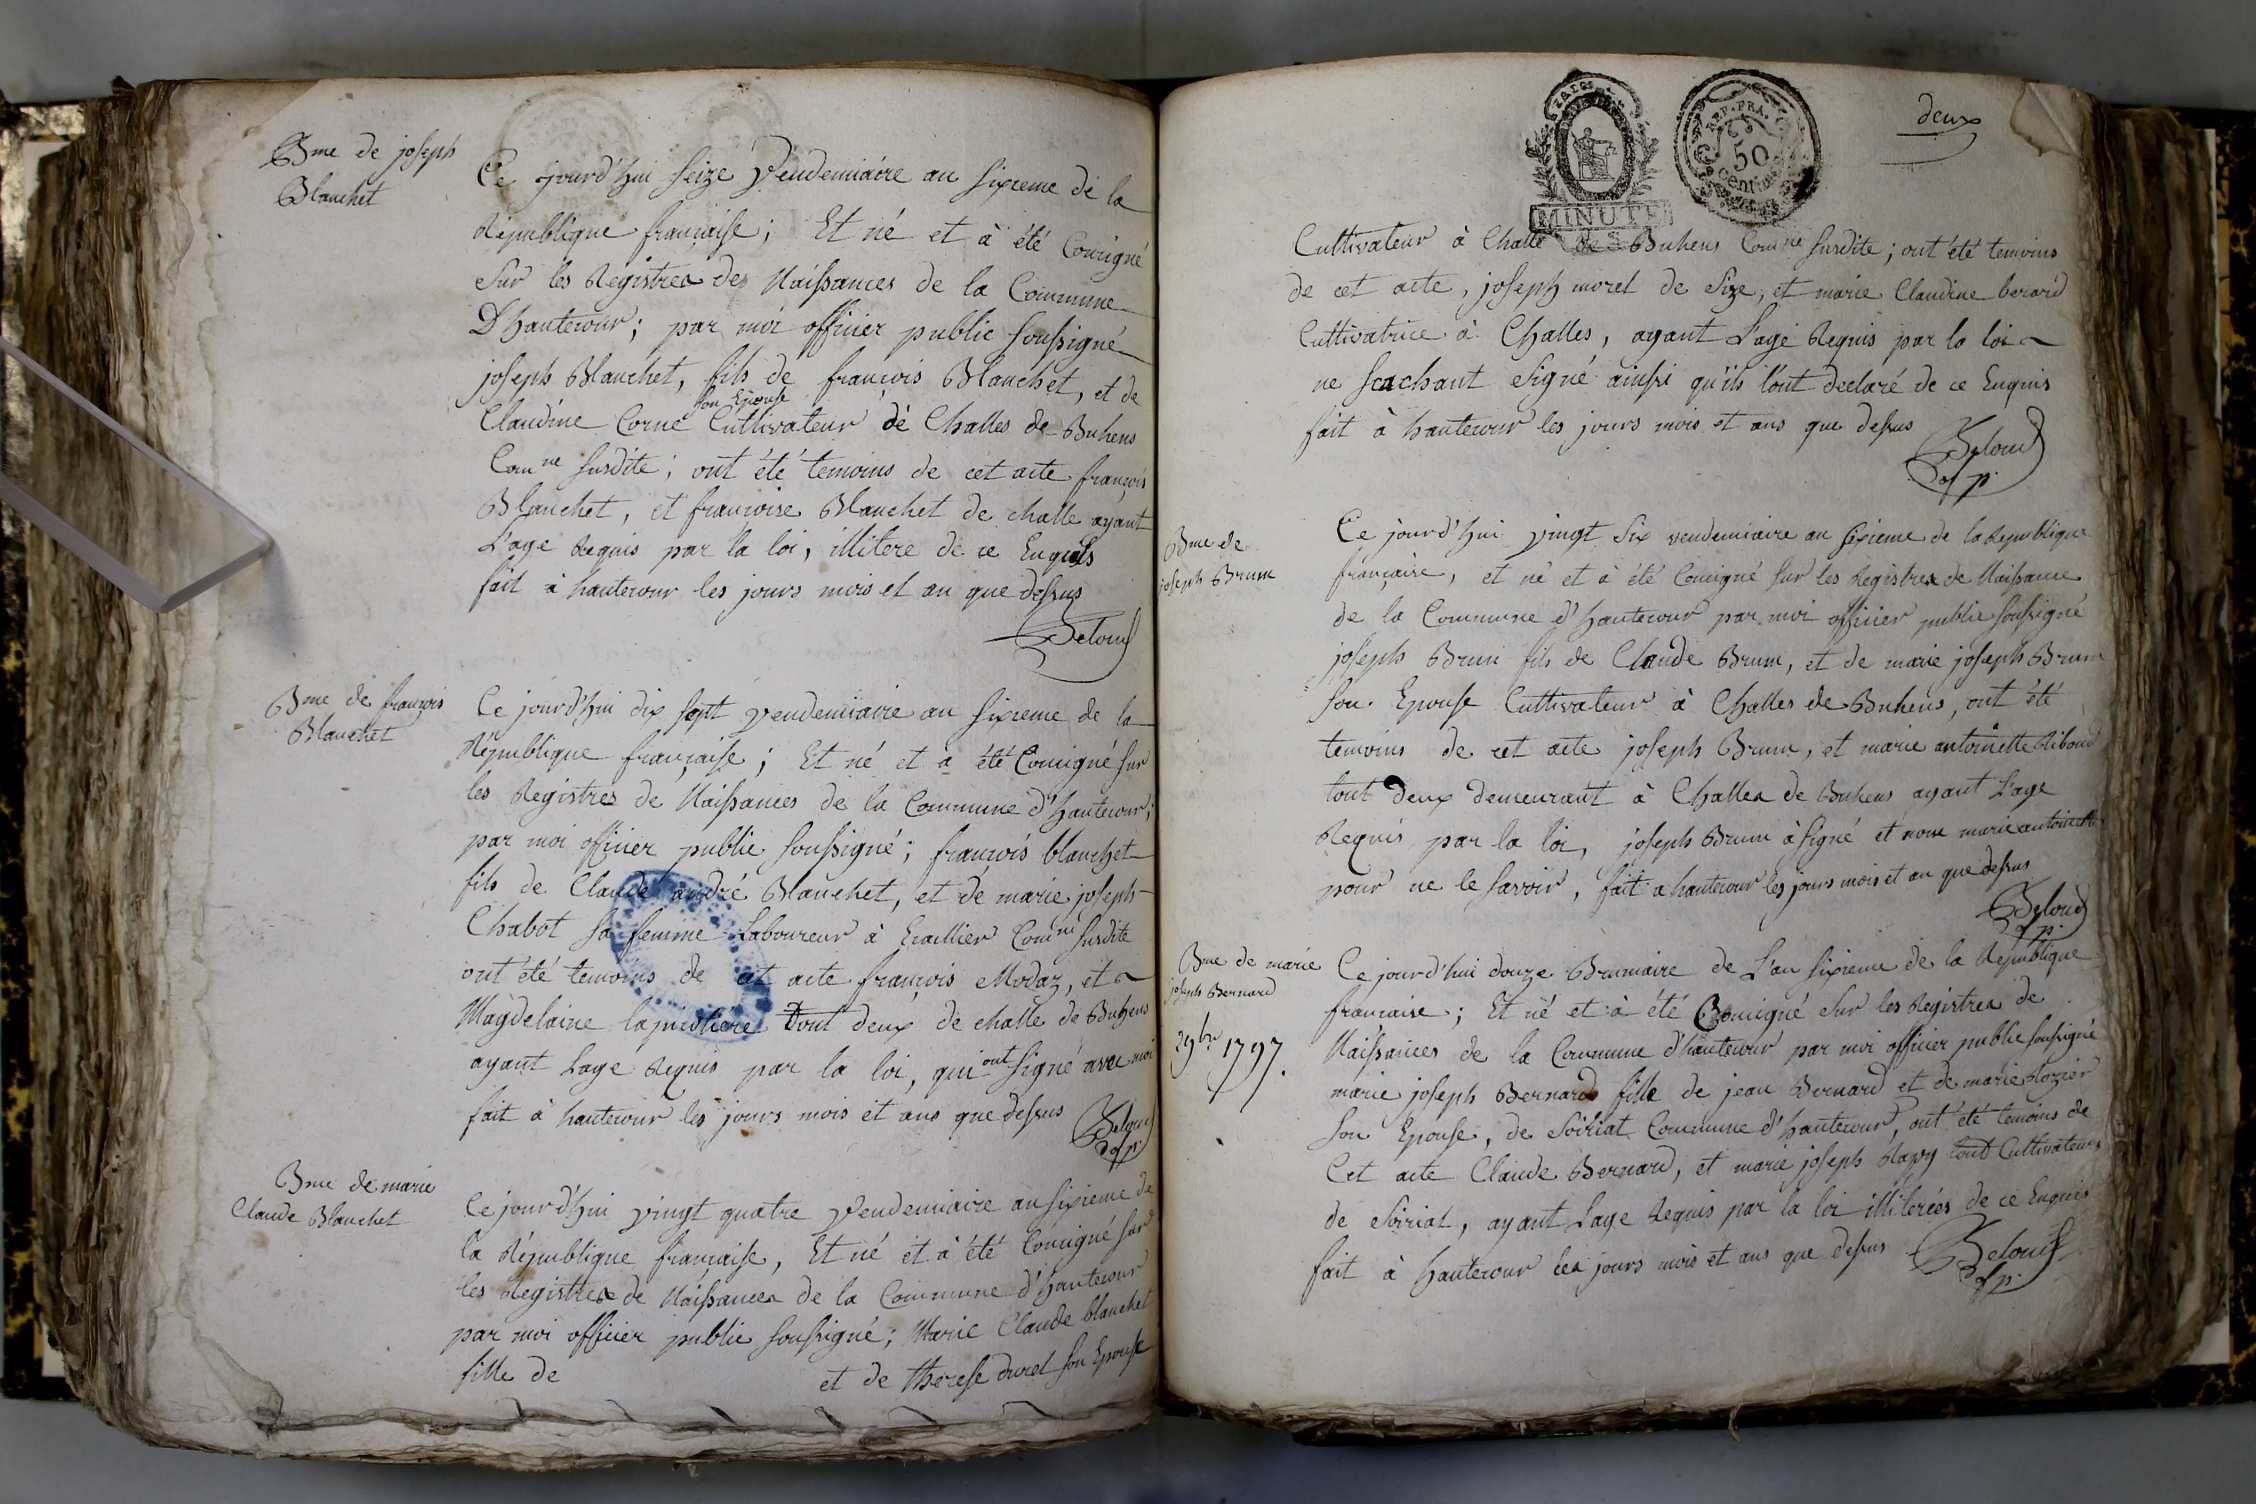 Bme de joseph
Blanchet
Ce jourd'hui seize Vendemiaire an sixieme de la
Republique francaise; Et né et à été Consigné
sur les Registres des Naissances de la Commune
D'hautecour; par moi officier public soussigné
joseph Blanchet, fils de francois Blanchet, et de
son Epouse
Claudine Corne Cultivateur de Challes de Buhens
Comne susdite; ont été temoins de cet acte françois
Blanchet, et francoise Blanchet de challe ayant
L'age Requis par la loi, illitere de ce Enquis
fait à hautecour les jours mois et an que dessus
Beloud
Bme de françois
Blanchet
Ce jourd'hui dix sept Vendemiaire an sixieme de la
République française; Et né et a été Consigné sur
les Registres de Naissances de la Commune d'hautecour;
par moi officier public soussigné; francois blanchet
fils de Claude andré Blanchet, et de marie joseph
Chabot sa femme Laboureur à Comne susdite
ont été temoins de cet acte françois Modaz, et
Magdelaine Tout deux de challe de Buhens
ayant Lage Requis par la loi, qui ont signé avec moi
fait à hautecour les jours mois et ans que dessus
Beloud
of p.
Bme de marie
Claude Blanchet
Ce jourd'hui vingt quatre Vendemiaire an sixieme de
la République francaise, Et né et à été Consigné sur
les Registres de Naissances de la Commune d'hautecour
par moi officier public soussigné; Marie Claude blanchet
fille de et de therese durel son Epouse
MINUTE
REP. FRA.
50
Centimes
deux
Cultivateur à Challe de Buhens Comne susdite; ont été temoins
de cet acte, joseph morel de Size, et marie Claudine berard
Cultivatrice à Challes, ayant Lage Requis par la loi
ne scachant signé ainsi qu'ils l'ont declaré de ce Enquis
fait à hautecour les jours mois et ans que dessus
Beloud
of p.
Bme de
joseph Brun
Ce jourd'hui vingt six vendemiaire an sixieme de la Republique
française, et né et à été Consigné sur les Registres de Naissance
de la Commune d'hautecour par moi officier public soussigné
joseph Brun fils de Claude Brun, et de marie joseph Brun
son Epouse Cultivateur à Challes de Buhens, ont été
temoins de cet acte joseph Brun, et marie antoinette Riboud
tout deux demeurant à Challes de Buhens ayant L'age
Requis par la loi, joseph Brun à signé et non marie antoinette
pour ne le savoir, fait a hautecour les jours mois et an que dessus
Beloud
of p.
Bme de marie
joseph Bernard
29bre 1797.
Ce jourd'hui douze Brumaire de L'an sixieme de la République
francaise; Et né et à été Consigné sur les Registres de
Naissances de la Commune d'hautecour par moi officier public soussigné
marie joseph Bernard fille de jean Bernard et de marie Rozier
son Epouse, de Soiriat Commune d'hautecour, ont été temoins de
Cet acte Claude Bernard, et marie joseph Ravy tout Cultivateurs
de Soiriat, ayant Lage Requis par la loi illiterées de ce Enquis
fait à hautecour les jours mois et ans que dessus
Beloud
of p.